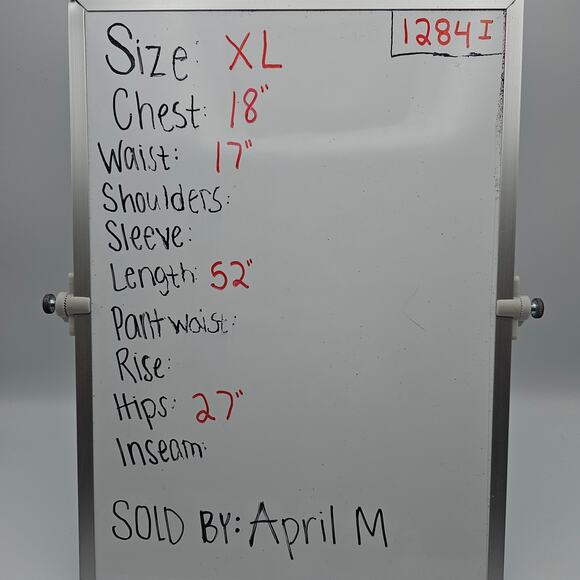 Size: XL
1284 I
Chest: 18"
Waist: 17"
Shoulders:
Sleeve:
Length: 52"
Pant waist:
Rise:
Hips: 27"
Inseam:
SOLD BY: April M